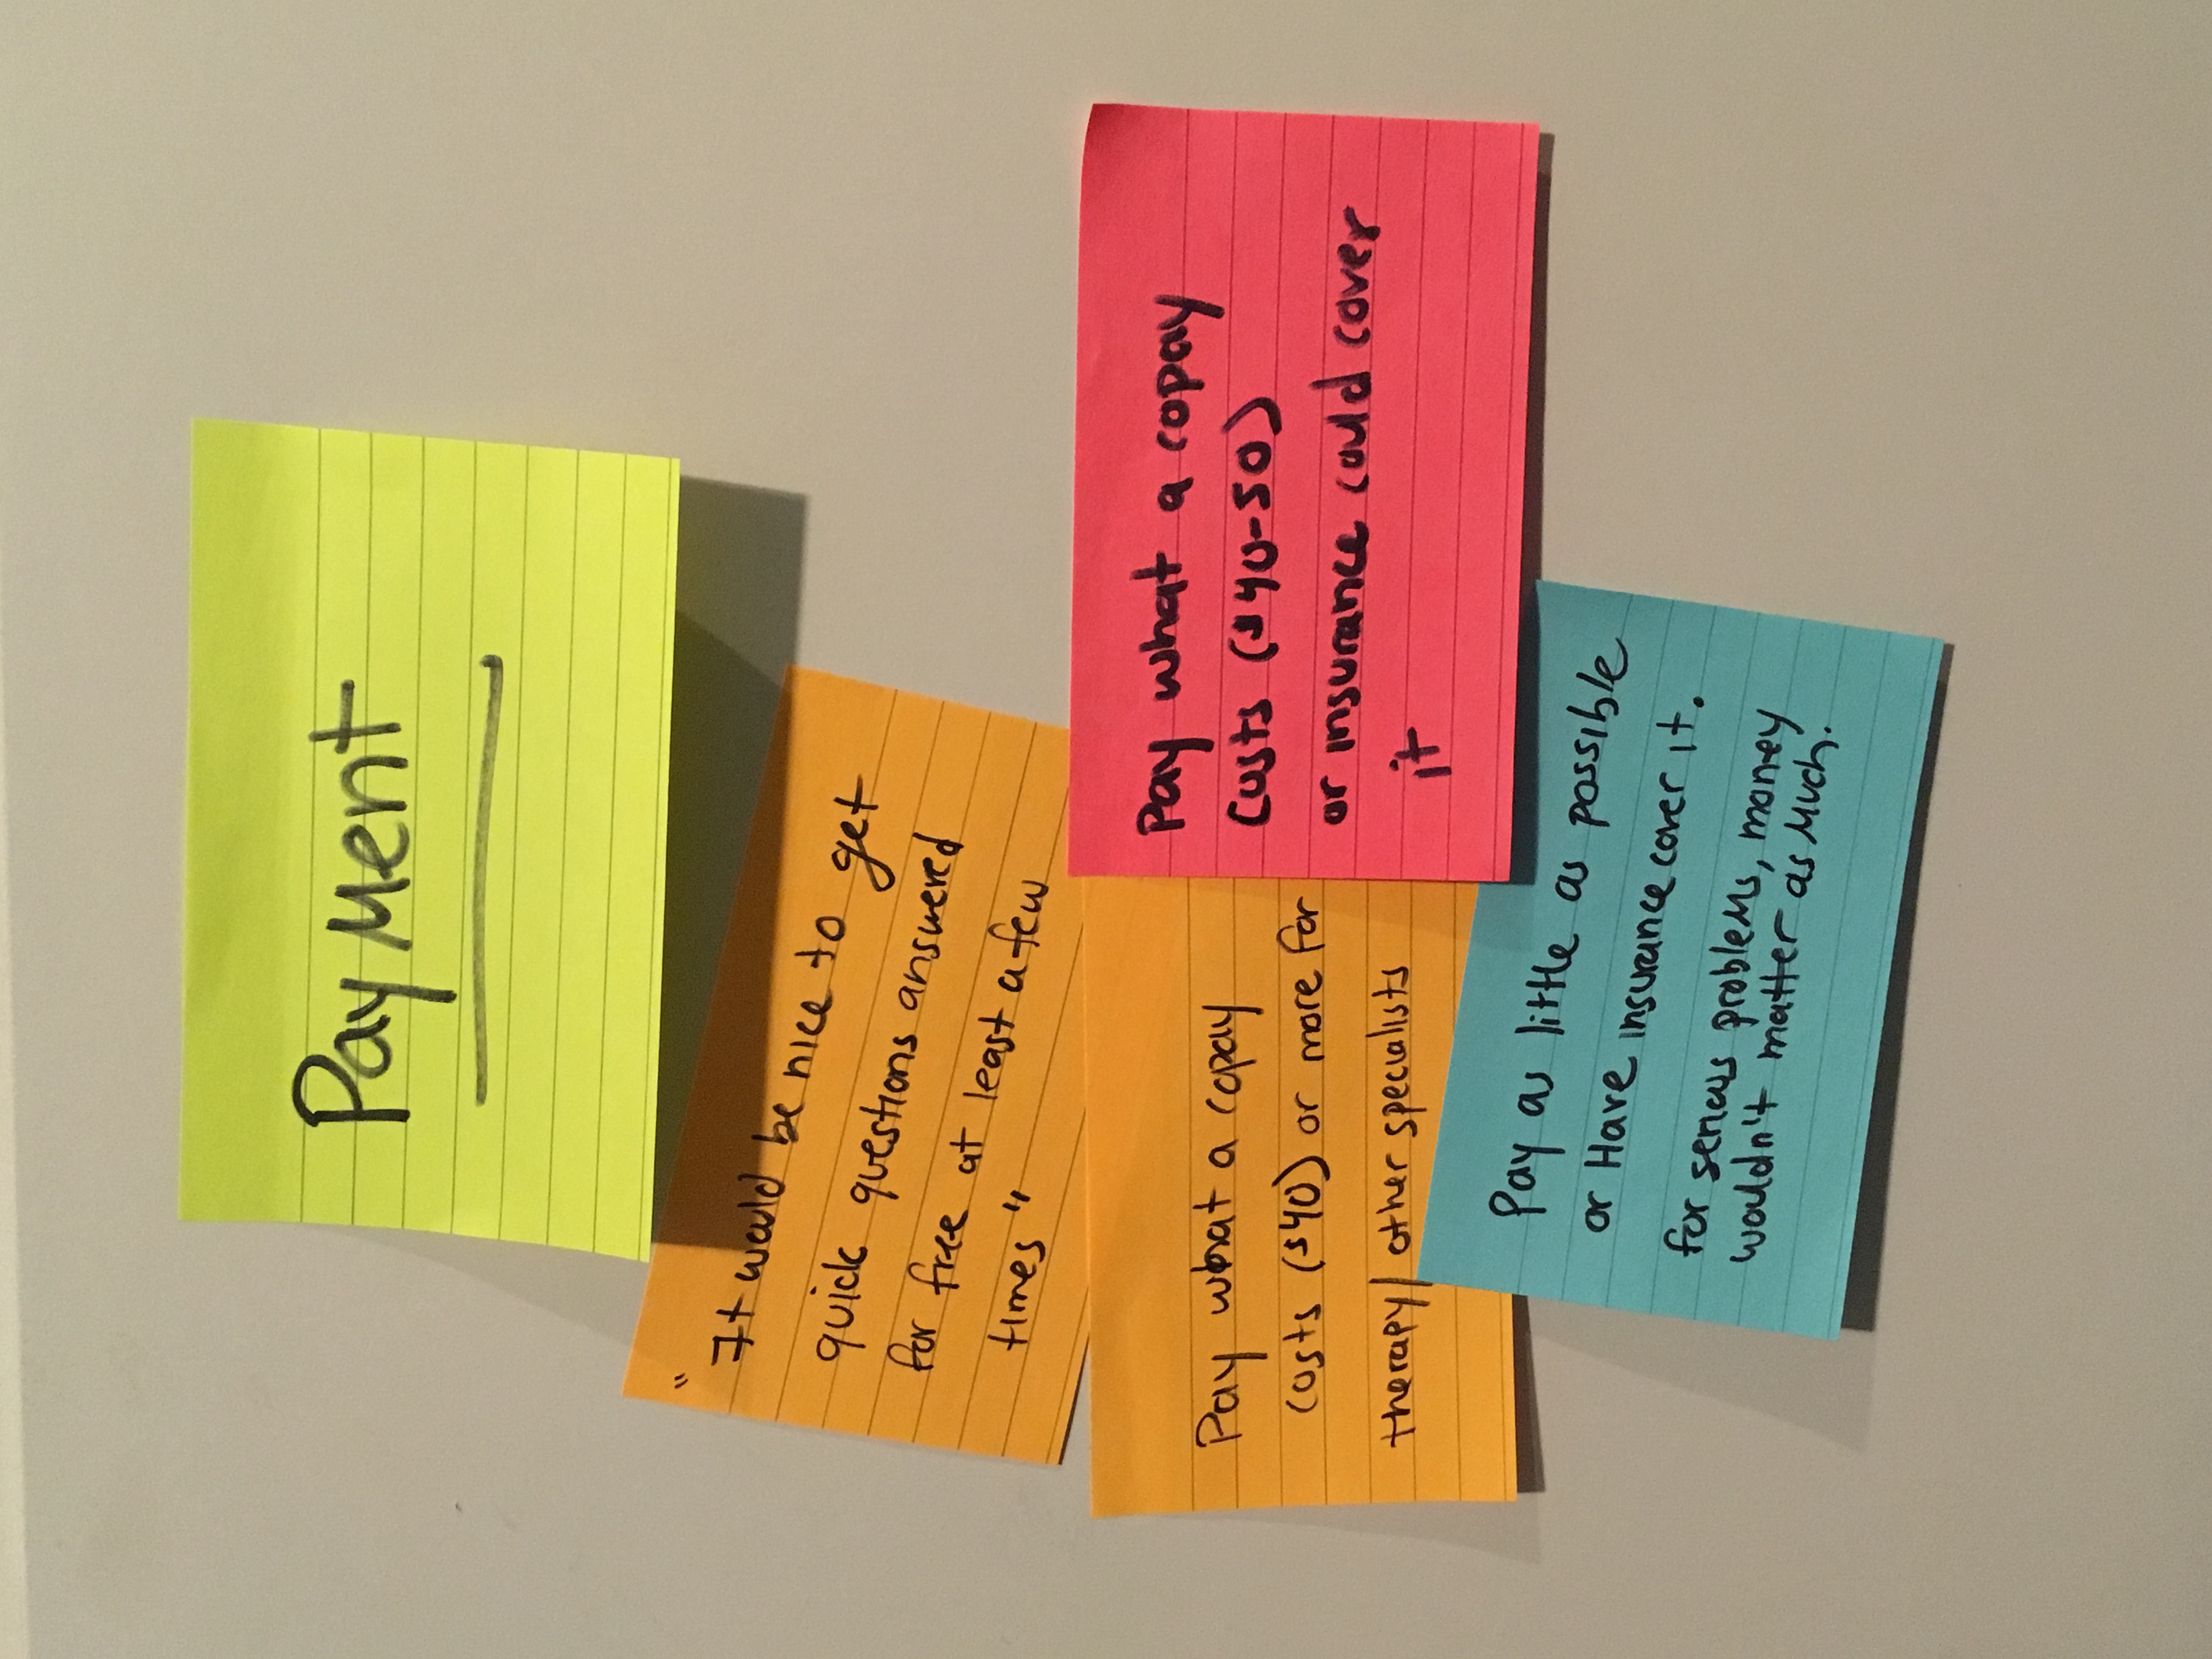 Payment
"It would be nice to get
quick questions answered
for free at least a few
times"
Pay what a copay
costs ($40) or more for
therapy/other specialists
Pay what a copay
costs ($40-50)
or insurance could cover
it
Pay as little as possible
or Have insurance cover it.
for serious problems, money
wouldn't matter as much.